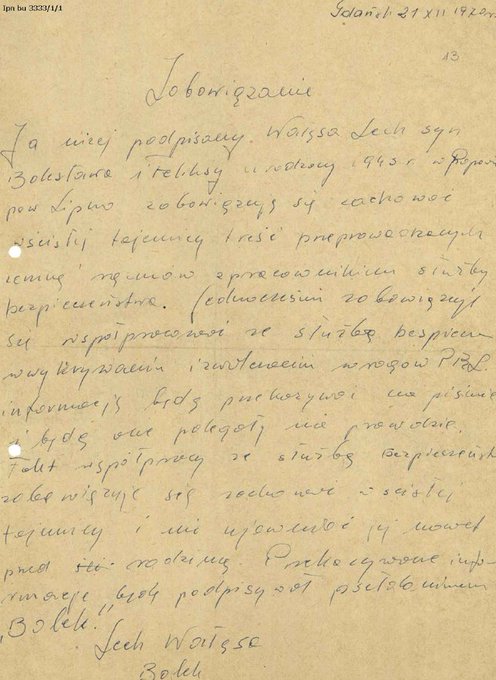 Ipn bu 3333/1/1
Gdańsk 21 XII 1970r
13
Zobowiązanie
Ja niżej podpisany Wałęsa Lech syn
Bolesława i Feliksy urodzony 1943 r. w Popowo
pow Lipno zobowiązują się zachować
wścisłej tajemnicy treść przeprowadzanych
zemną rozmów z pracownikiem służby
bezpieczeństwa. Jednocześnie zobowiązuję
się współpracować ze służbą bezpiecz
w wykrywaniu i zwalczaniu wrogów PRL.
informację będę przekazywać na piśmie
i będą one polegały na prawdzie.
Fakt współpracy ze służbą bezpieczeńst
zobowiązuje się zachować w ścisłej
tajemnicy i nie ujawniać jej nawet
przed rodziną. Przekazywane infor-
rmacje będę podpisywał pseudonimem
„Bolek".
Lech Wałęsa
Bolek